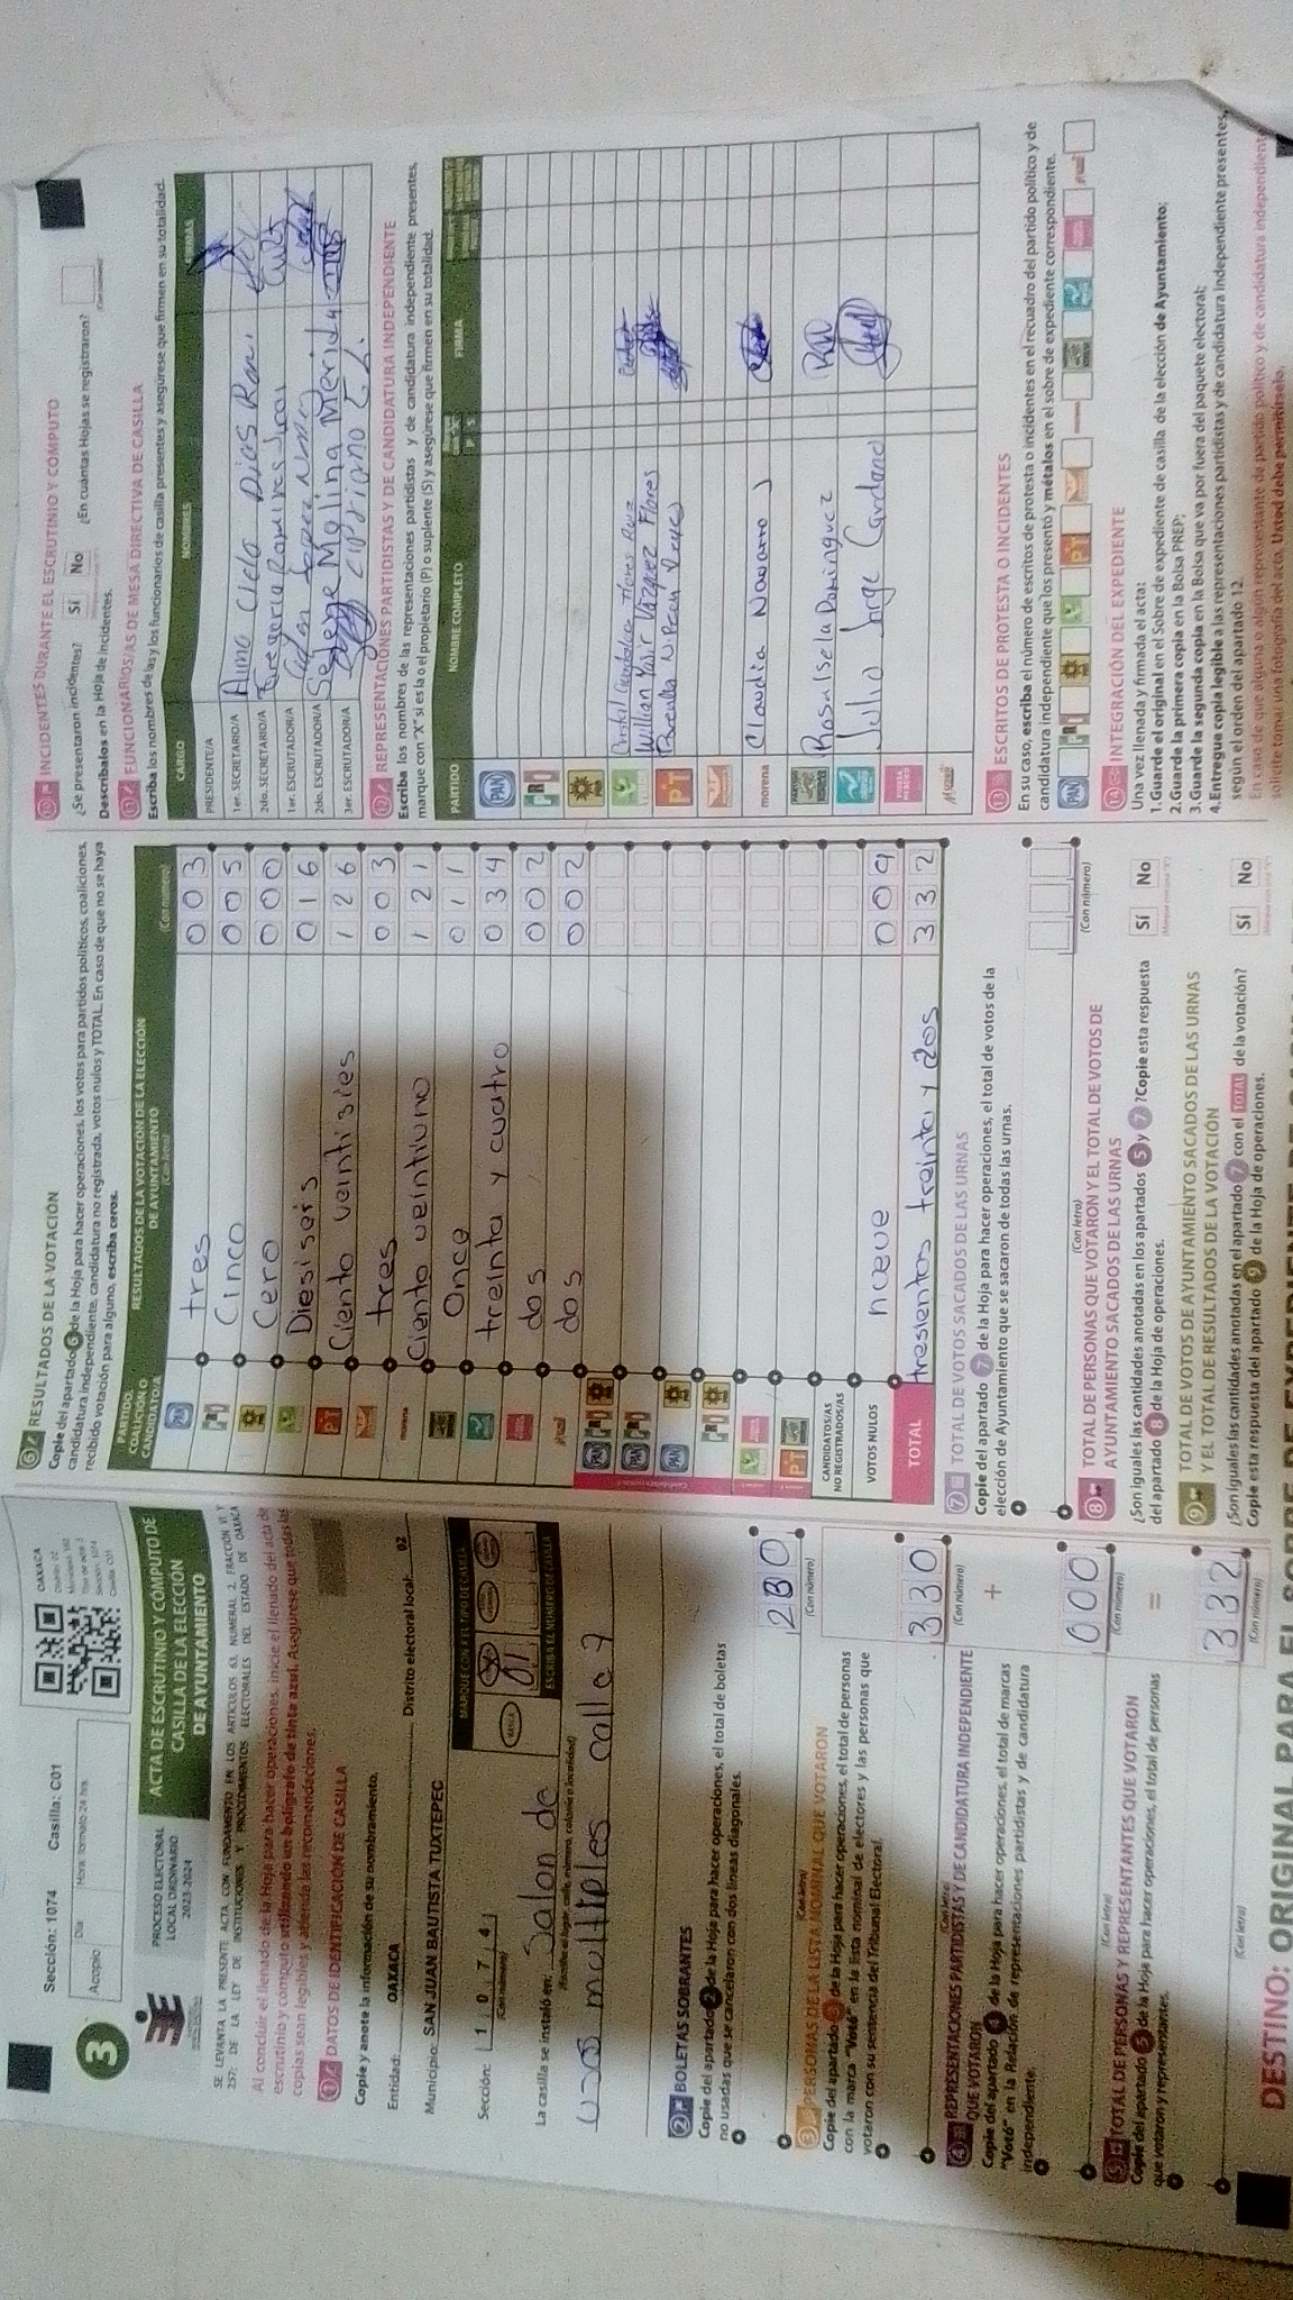 3
Sección: 1074 Casilla: C01
Acopio Día Hora: formato 24 hrs.
OAXACA
PROCESO ELECTORAL
LOCAL ORDINARIO
2023-2024
ACTA DE ESCRUTINIO Y CÓMPUTO DE
CASILLA DE LA ELECCIÓN
DE AYUNTAMIENTO
SE LEVANTA LA PRESENTE ACTA CON FUNDAMENTO EN LOS ARTÍCULOS 63, NUMERAL 2, FRACCIÓN VI
257; DE LA LEY DE INSTITUCIONES Y PROCEDIMIENTOS ELECTORALES DEL ESTADO DE OAXACA
Al concluir el llenado de la Hoja para hacer operaciones, inicie el llenado del acta de
escrutinio y cómputo utilizando un bolígrafo de tinta azul. Asegúrese que todas las
copias sean legibles y atienda las recomendaciones.
1 DATOS DE IDENTIFICACIÓN DE CASILLA
Copie y anote la información de su nombramiento.
Entidad: OAXACA Distrito electoral local: 02
Municipio: SAN JUAN BAUTISTA TUXTEPEC
Sección: 1 0 7 4
(Con número)
MARQUE CON X EL TIPO DE CASILLA
BÁSICA
01
ESCRIBA EL NÚMERO DE CASILLA
La casilla se instaló en: Salon de
(Escriba el lugar, calle, número, colonia o localidad)
usos multiples calle 7
2 BOLETAS SOBRANTES
Copie del apartado 2 de la Hoja para hacer operaciones, el total de boletas
no usadas que se cancelaron con dos líneas diagonales.
280
(Con letra) (Con número)
3 PERSONAS DE LA LISTA NOMINAL QUE VOTARON
Copie del apartado 3 de la Hoja para hacer operaciones, el total de personas
con la marca "Votó" en la lista nominal de electores y las personas que
votaron con su sentencia del Tribunal Electoral.
330
(Con letra) (Con número)
4 REPRESENTACIONES PARTIDISTAS Y DE CANDIDATURA INDEPENDIENTE
QUE VOTARON
Copie del apartado 4 de la Hoja para hacer operaciones, el total de marcas
"Votó" en la Relación de representaciones partidistas y de candidatura
independiente.
+
000
(Con letra) (Con número)
5 TOTAL DE PERSONAS Y REPRESENTANTES QUE VOTARON
Copie del apartado 5 de la Hoja para hacer operaciones, el total de personas
que votaron y representantes.
=
332
(Con letra) (Con número)
6 RESULTADOS DE LA VOTACIÓN
Copie del apartado 6 de la Hoja para hacer operaciones, los votos para partidos políticos, coaliciones,
candidatura independiente, candidatura no registrada, votos nulos y TOTAL. En caso de que no se haya
recibido votación para alguno, escriba ceros.
PARTIDO, COALICIÓN O CANDIDATO/A
RESULTADOS DE LA VOTACIÓN DE LA ELECCIÓN
DE AYUNTAMIENTO
(Con letra) (Con número)
PAN tres 003
PRI Cinco 005
PRD Cero 000
Diesiseis 016
PT Ciento veintisies 126
tres 003
morena Ciento veintiuno 121
Once 011
treinta y cuatro 034
dos 002
dos 002
PAN PRI PRD
PAN PRI
PAN PRD
PRI PRD
PT
CANDIDATOS/AS
NO REGISTRADOS/AS
VOTOS NULOS nueve 009
TOTAL tresientos treinta y dos 332
7 TOTAL DE VOTOS SACADOS DE LAS URNAS
Copie del apartado 7 de la Hoja para hacer operaciones, el total de votos de la
elección de Ayuntamiento que se sacaron de todas las urnas.
(Con letra) (Con número)
8 TOTAL DE PERSONAS QUE VOTARON Y EL TOTAL DE VOTOS DE
AYUNTAMIENTO SACADOS DE LAS URNAS
¿Son iguales las cantidades anotadas en los apartados 5 y 7? Copie esta respuesta
del apartado 8 de la Hoja de operaciones.
Sí No
9 TOTAL DE VOTOS DE AYUNTAMIENTO SACADOS DE LAS URNAS
Y EL TOTAL DE RESULTADOS DE LA VOTACIÓN
¿Son iguales las cantidades anotadas en el apartado 7 con el TOTAL de la votación?
Copie esta respuesta del apartado 9 de la Hoja de operaciones.
Sí No
10 INCIDENTES DURANTE EL ESCRUTINIO Y CÓMPUTO
¿Se presentaron incidentes? Sí No ¿En cuántas Hojas se registraron?
(Con número)
Descríbalos en la Hoja de Incidentes.
11 FUNCIONARIOS/AS DE MESA DIRECTIVA DE CASILLA
Escriba los nombres de las y los funcionarios de casilla presentes y asegúrese que firmen en su totalidad.
CARGO NOMBRES FIRMAS
PRESIDENTE/A
1er. SECRETARIO/A
2do. SECRETARIO/A
1er. ESCRUTADOR/A
2do. ESCRUTADOR/A
3er. ESCRUTADOR/A
12 REPRESENTACIONES PARTIDISTAS Y DE CANDIDATURA INDEPENDIENTE
Escriba los nombres de las representaciones partidistas y de candidatura independiente presentes,
marque con "X" si es la o el propietario (P) o suplente (S) y asegúrese que firmen en su totalidad.
PARTIDO NOMBRE COMPLETO P S FIRMA
PAN
PRI
PRD
Willian Yasir Vázquez Flores
PT
morena Claudia Navarro
Rosaisela Dominguez
Julio Jorge Cardano
13 ESCRITOS DE PROTESTA O INCIDENTES
En su caso, escriba el número de escritos de protesta o incidentes en el recuadro del partido político y de
candidatura independiente que los presentó y métalos en el sobre de expediente correspondiente.
PAN PRI PRD PT
14 INTEGRACIÓN DEL EXPEDIENTE
Una vez llenada y firmada el acta:
1.Guarde el original en el Sobre de expediente de casilla de la elección de Ayuntamiento;
2.Guarde la primera copia en la Bolsa PREP;
3.Guarde la segunda copia en la Bolsa que va por fuera del paquete electoral;
4.Entregue copia legible a las representaciones partidistas y de candidatura independiente presentes,
según el orden del apartado 12.
En caso de que alguna o algún representante de partido político y de candidatura independiente
solicite tomar una fotografía del acta, Usted debe permitírselo.
DESTINO: ORIGINAL PARA EL SOBRE DE EXPEDIENTE DE